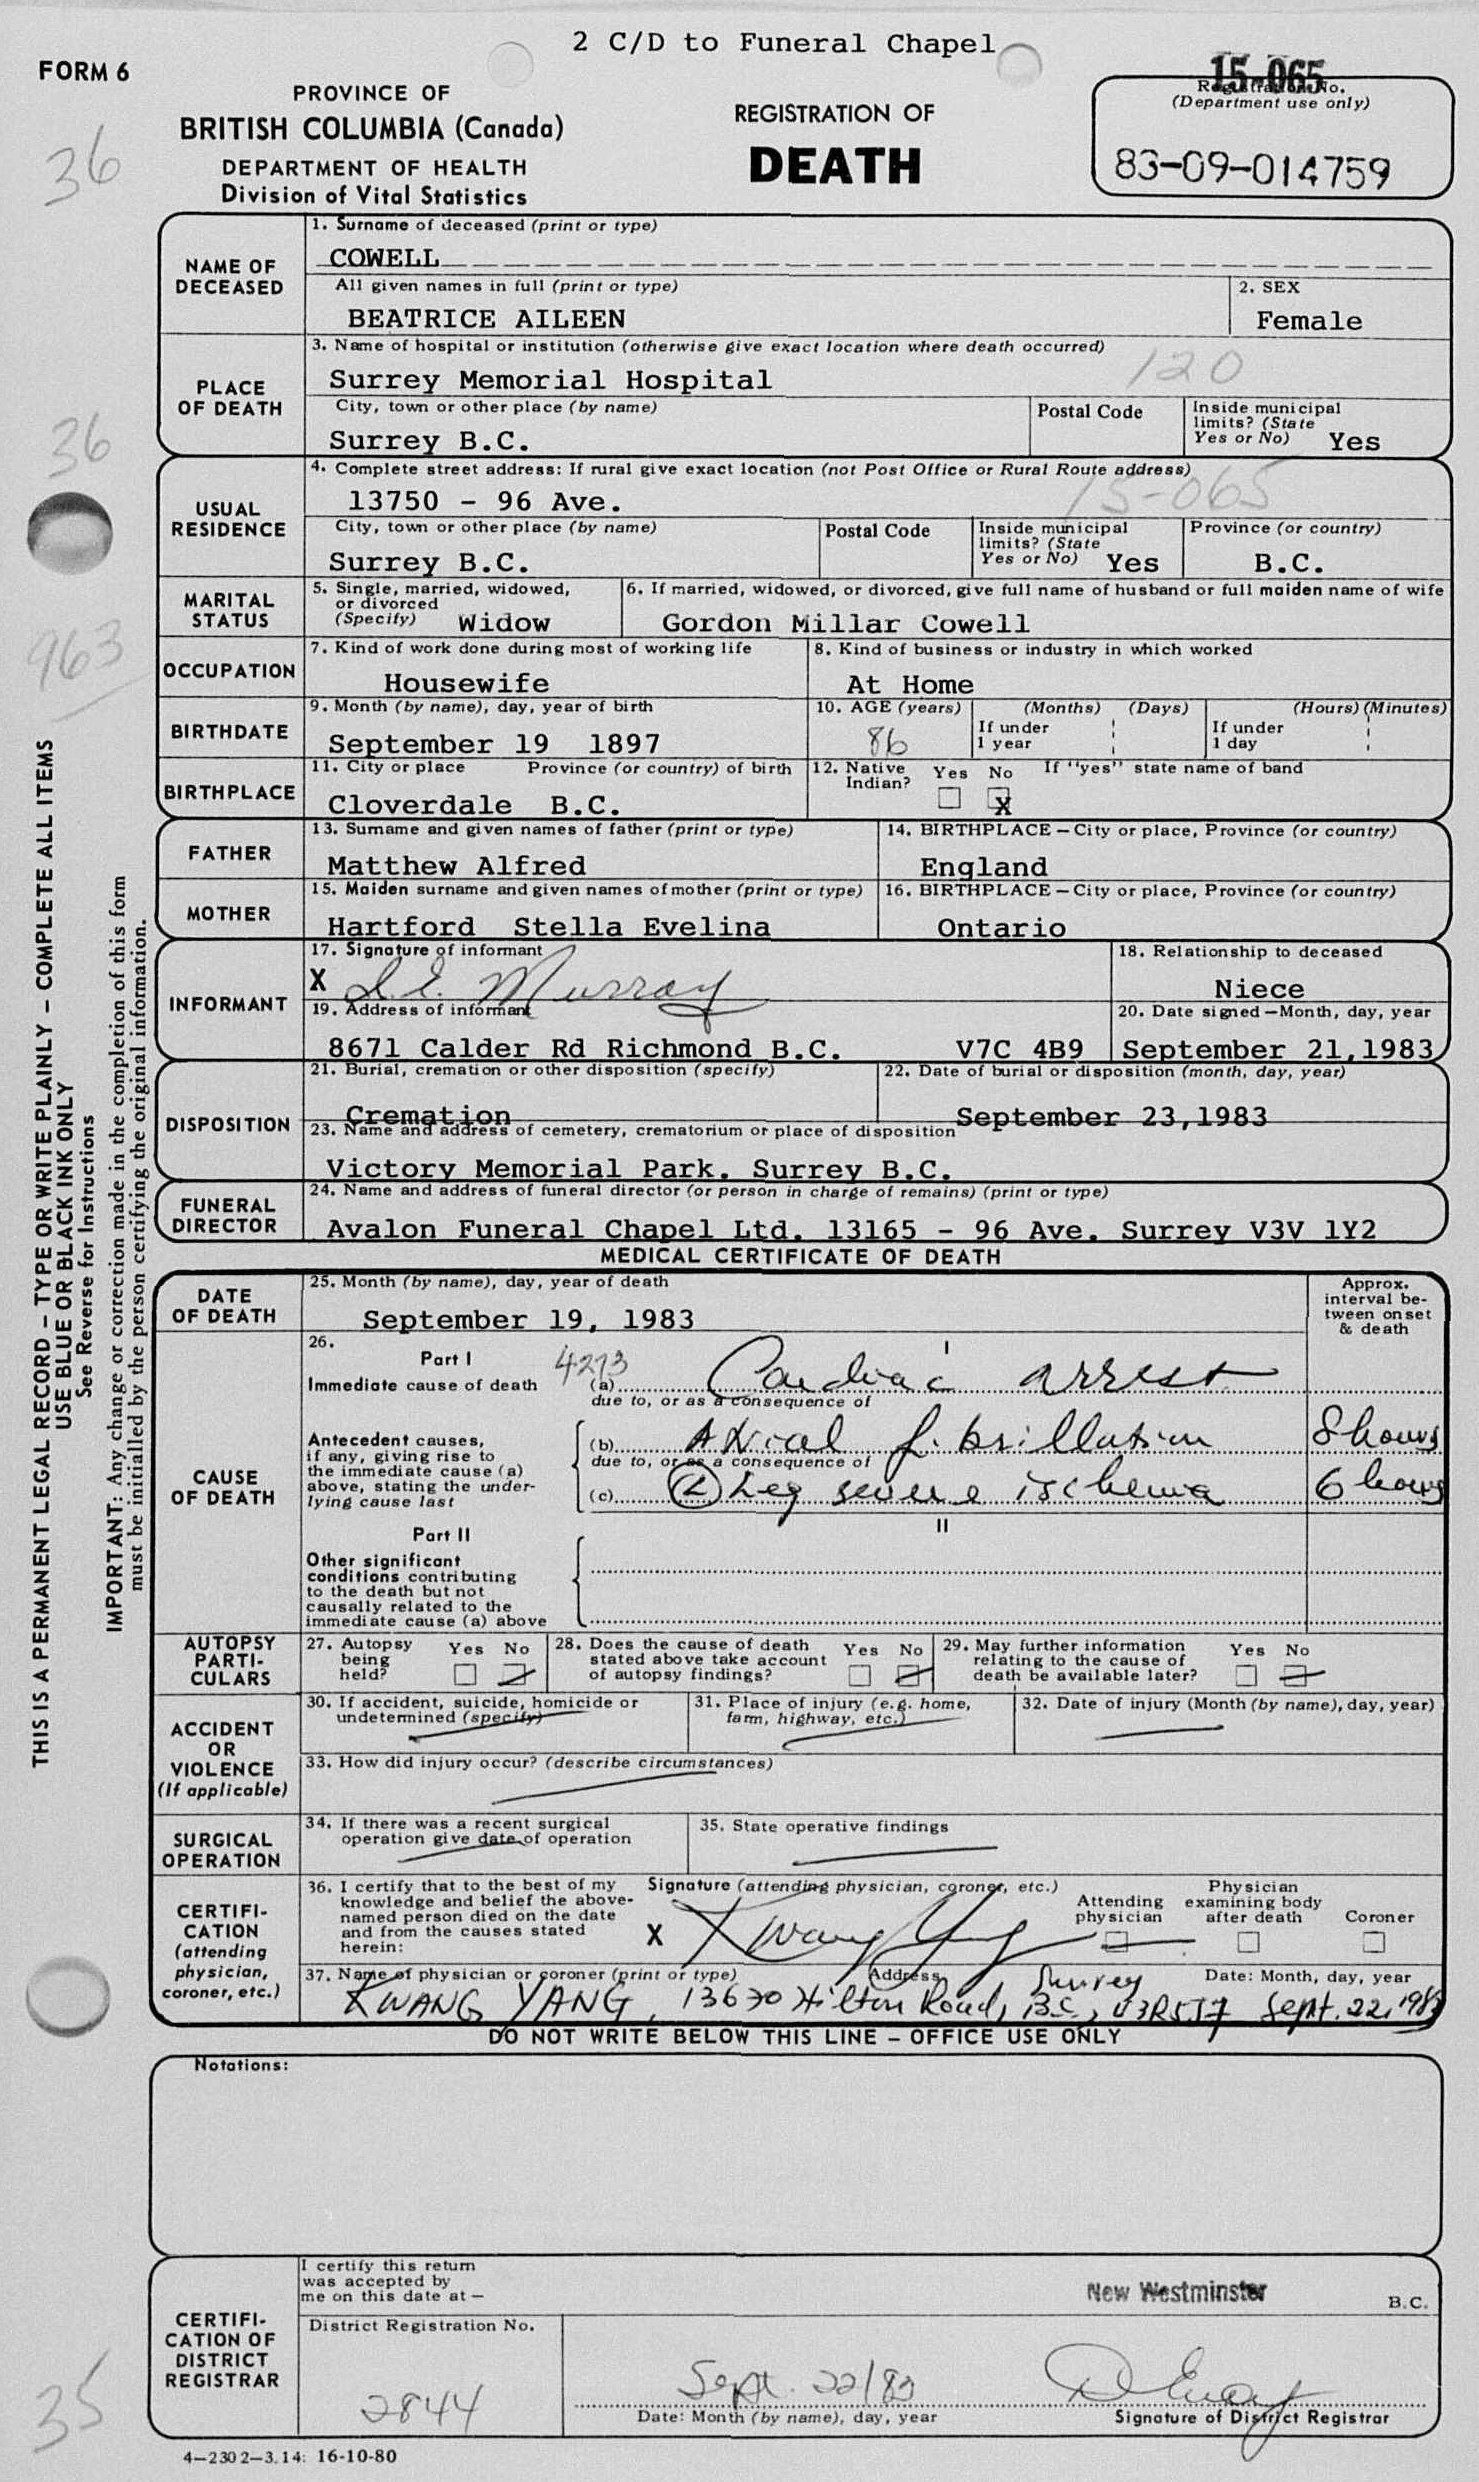 2 C/D to Funeral Chapel
FORM 6
15-065
PROVINCE OF
BRITISH COLUMBIA (Canada)
DEPARTMENT OF HEALTH
Division of Vital Statistics
REGISTRATION OF
DEATH
Registration No.
(Department use only)
83-09-014759
36
36
963
35
THIS IS A PERMANENT LEGAL RECORD – TYPE OR WRITE PLAINLY – COMPLETE ALL ITEMS
USE BLUE OR BLACK INK ONLY
See Reverse for Instructions
IMPORTANT: Any change or correction made in the completion of this form
must be initialled by the person certifying the original information.
NAME OF
DECEASED
1. Surname of deceased (print or type)
COWELL
All given names in full (print or type)
BEATRICE AILEEN
2. SEX
Female
PLACE
OF DEATH
3. Name of hospital or institution (otherwise give exact location where death occurred)
Surrey Memorial Hospital
120
City, town or other place (by name)
Surrey B.C.
Postal Code
Inside municipal
limits? (State
Yes or No) Yes
USUAL
RESIDENCE
4. Complete street address: If rural give exact location (not Post Office or Rural Route address)
13750 - 96 Ave.
15-065
City, town or other place (by name)
Surrey B.C.
Postal Code
Inside municipal
limits? (State
Yes or No) Yes
Province (or country)
B.C.
MARITAL
STATUS
5. Single, married, widowed,
or divorced
(Specify) Widow
6. If married, widowed, or divorced, give full name of husband or full maiden name of wife
Gordon Millar Cowell
OCCUPATION
7. Kind of work done during most of working life
Housewife
8. Kind of business or industry in which worked
At Home
BIRTHDATE
9. Month (by name), day, year of birth
September 19 1897
10. AGE (years)
86
(Months) (Days)
If under
1 year
(Hours) (Minutes)
If under
1 day
BIRTHPLACE
11. City or place Province (or country) of birth
Cloverdale B.C.
12. Native
Indian?
Yes No
X
If "yes" state name of band
FATHER
13. Surname and given names of father (print or type)
Matthew Alfred
14. BIRTHPLACE – City or place, Province (or country)
England
MOTHER
15. Maiden surname and given names of mother (print or type)
Hartford Stella Evelina
16. BIRTHPLACE – City or place, Province (or country)
Ontario
INFORMANT
17. Signature of informant
X Murray
18. Relationship to deceased
Niece
19. Address of informant
8671 Calder Rd Richmond B.C. V7C 4B9
20. Date signed – Month, day, year
September 21,1983
DISPOSITION
21. Burial, cremation or other disposition (specify)
Cremation
22. Date of burial or disposition (month, day, year)
September 23,1983
23. Name and address of cemetery, crematorium or place of disposition
Victory Memorial Park. Surrey B.C.
FUNERAL
DIRECTOR
24. Name and address of funeral director (or person in charge of remains) (print or type)
Avalon Funeral Chapel Ltd. 13165 - 96 Ave. Surrey V3V 1Y2
MEDICAL CERTIFICATE OF DEATH
DATE
OF DEATH
25. Month (by name), day, year of death
September 19, 1983
Approx.
interval be-
tween onset
& death
CAUSE
OF DEATH
26.
Part I
I
Immediate cause of death
4273
(a) Cardiac arrest
due to, or as a consequence of
Antecedent causes,
if any, giving rise to
the immediate cause (a)
above, stating the under-
lying cause last
(b) Atrial fibrillation 8 hours
due to, or as a consequence of
(c) (L) Leg severe ischemia 6 hours
Part II
II
Other significant
conditions contributing
to the death but not
causally related to the
immediate cause (a) above
AUTOPSY
PARTI-
CULARS
27. Autopsy
being
held?
Yes No
28. Does the cause of death
stated above take account
of autopsy findings?
Yes No
29. May further information
relating to the cause of
death be available later?
Yes No
ACCIDENT
OR
VIOLENCE
(If applicable)
30. If accident, suicide, homicide or
undetermined (specify)
31. Place of injury (e.g. home,
farm, highway, etc.)
32. Date of injury (Month (by name), day, year)
33. How did injury occur? (describe circumstances)
SURGICAL
OPERATION
34. If there was a recent surgical
operation give date of operation
35. State operative findings
CERTIFI-
CATION
(attending
physician,
coroner, etc.)
36. I certify that to the best of my
knowledge and belief the above-
named person died on the date
and from the causes stated
herein:
Signature (attending physician, coroner, etc.)
X Kwang Yang
Attending
physician
Physician
examining body
after death
Coroner
37. Name of physician or coroner (print or type)
Address
Date: Month, day, year
KWANG YANG, 13630 Hilton Road, Surrey B.C., V3R5J7 Sept. 22, 1983
DO NOT WRITE BELOW THIS LINE – OFFICE USE ONLY
Notations:
CERTIFI-
CATION OF
DISTRICT
REGISTRAR
I certify this return
was accepted by
me on this date at –
New Westminster
B.C.
District Registration No.
2844
Sept. 22/83
Date: Month (by name), day, year
Signature of District Registrar
4–2302–3.14: 16-10-80